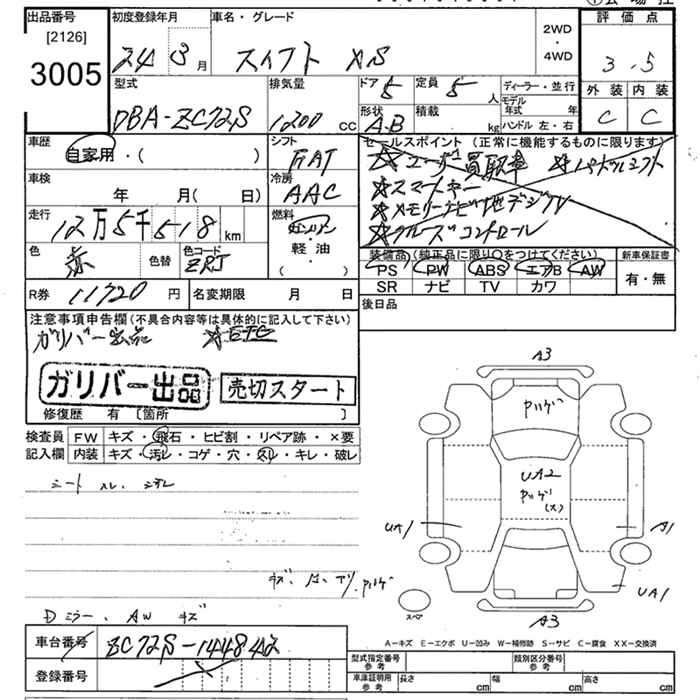 出品番号
[2126]
3005
初度登録年月
24 3 月
車名・グレード
スイフト XS
2WD
・
4WD
評価点
3.5
外装 内装
C C
型式
DBA-ZC72S
排気量
1200 cc
ドア 5
定員 5 人
形状
A.B
積載 kg
ディーラー・並行
モデル年式 年
ハンドル 左・右
車歴
自家用・( )
シフト
FAT
セールスポイント (正常に機能するものに限ります)
☆ユーザー買取車 ☆パドルシフト
☆スマートキー
☆メモリーナビ地デジTV
☆クルーズコントロール
車検
年 月( 日)
冷房
AAC
走行
12万5千518 km
燃料
ガソリン
軽・油
( )
色
赤
色替
色コード
ZRJ
装備品 (純正品に限り○をつけてください)
PS PW ABS エアB AW
SR ナビ TV カワ
新車保証書
有・無
R券 11720 円
名変期限 月 日
後日品
注意事項申告欄 (不具合内容等は具体的に記入して下さい)
ガリバー出品 ☆ETC
ガリバー出品
売切スタート
修復歴 有 [箇所 ]
検査員
記入欄
FW キズ・飛石・ヒビ割・リペア跡・×要
内装 キズ・汚レ・コゲ・穴・スレ・キレ・破レ
シート スレ
Dミラー、AW キズ
A3
ヤハゲ
UA2
ヤハゲ
(大)
UA1
A1
UA1
A3
スペア
A−キズ E−エクボ U−凹み W−補修跡 S−サビ C−腐食 XX−交換済
車台番号
ZC72S-144842
登録番号
型式指定番号
参考
類別区分番号
参考
車庫証明用
参考
長さ cm
幅 cm
高さ cm